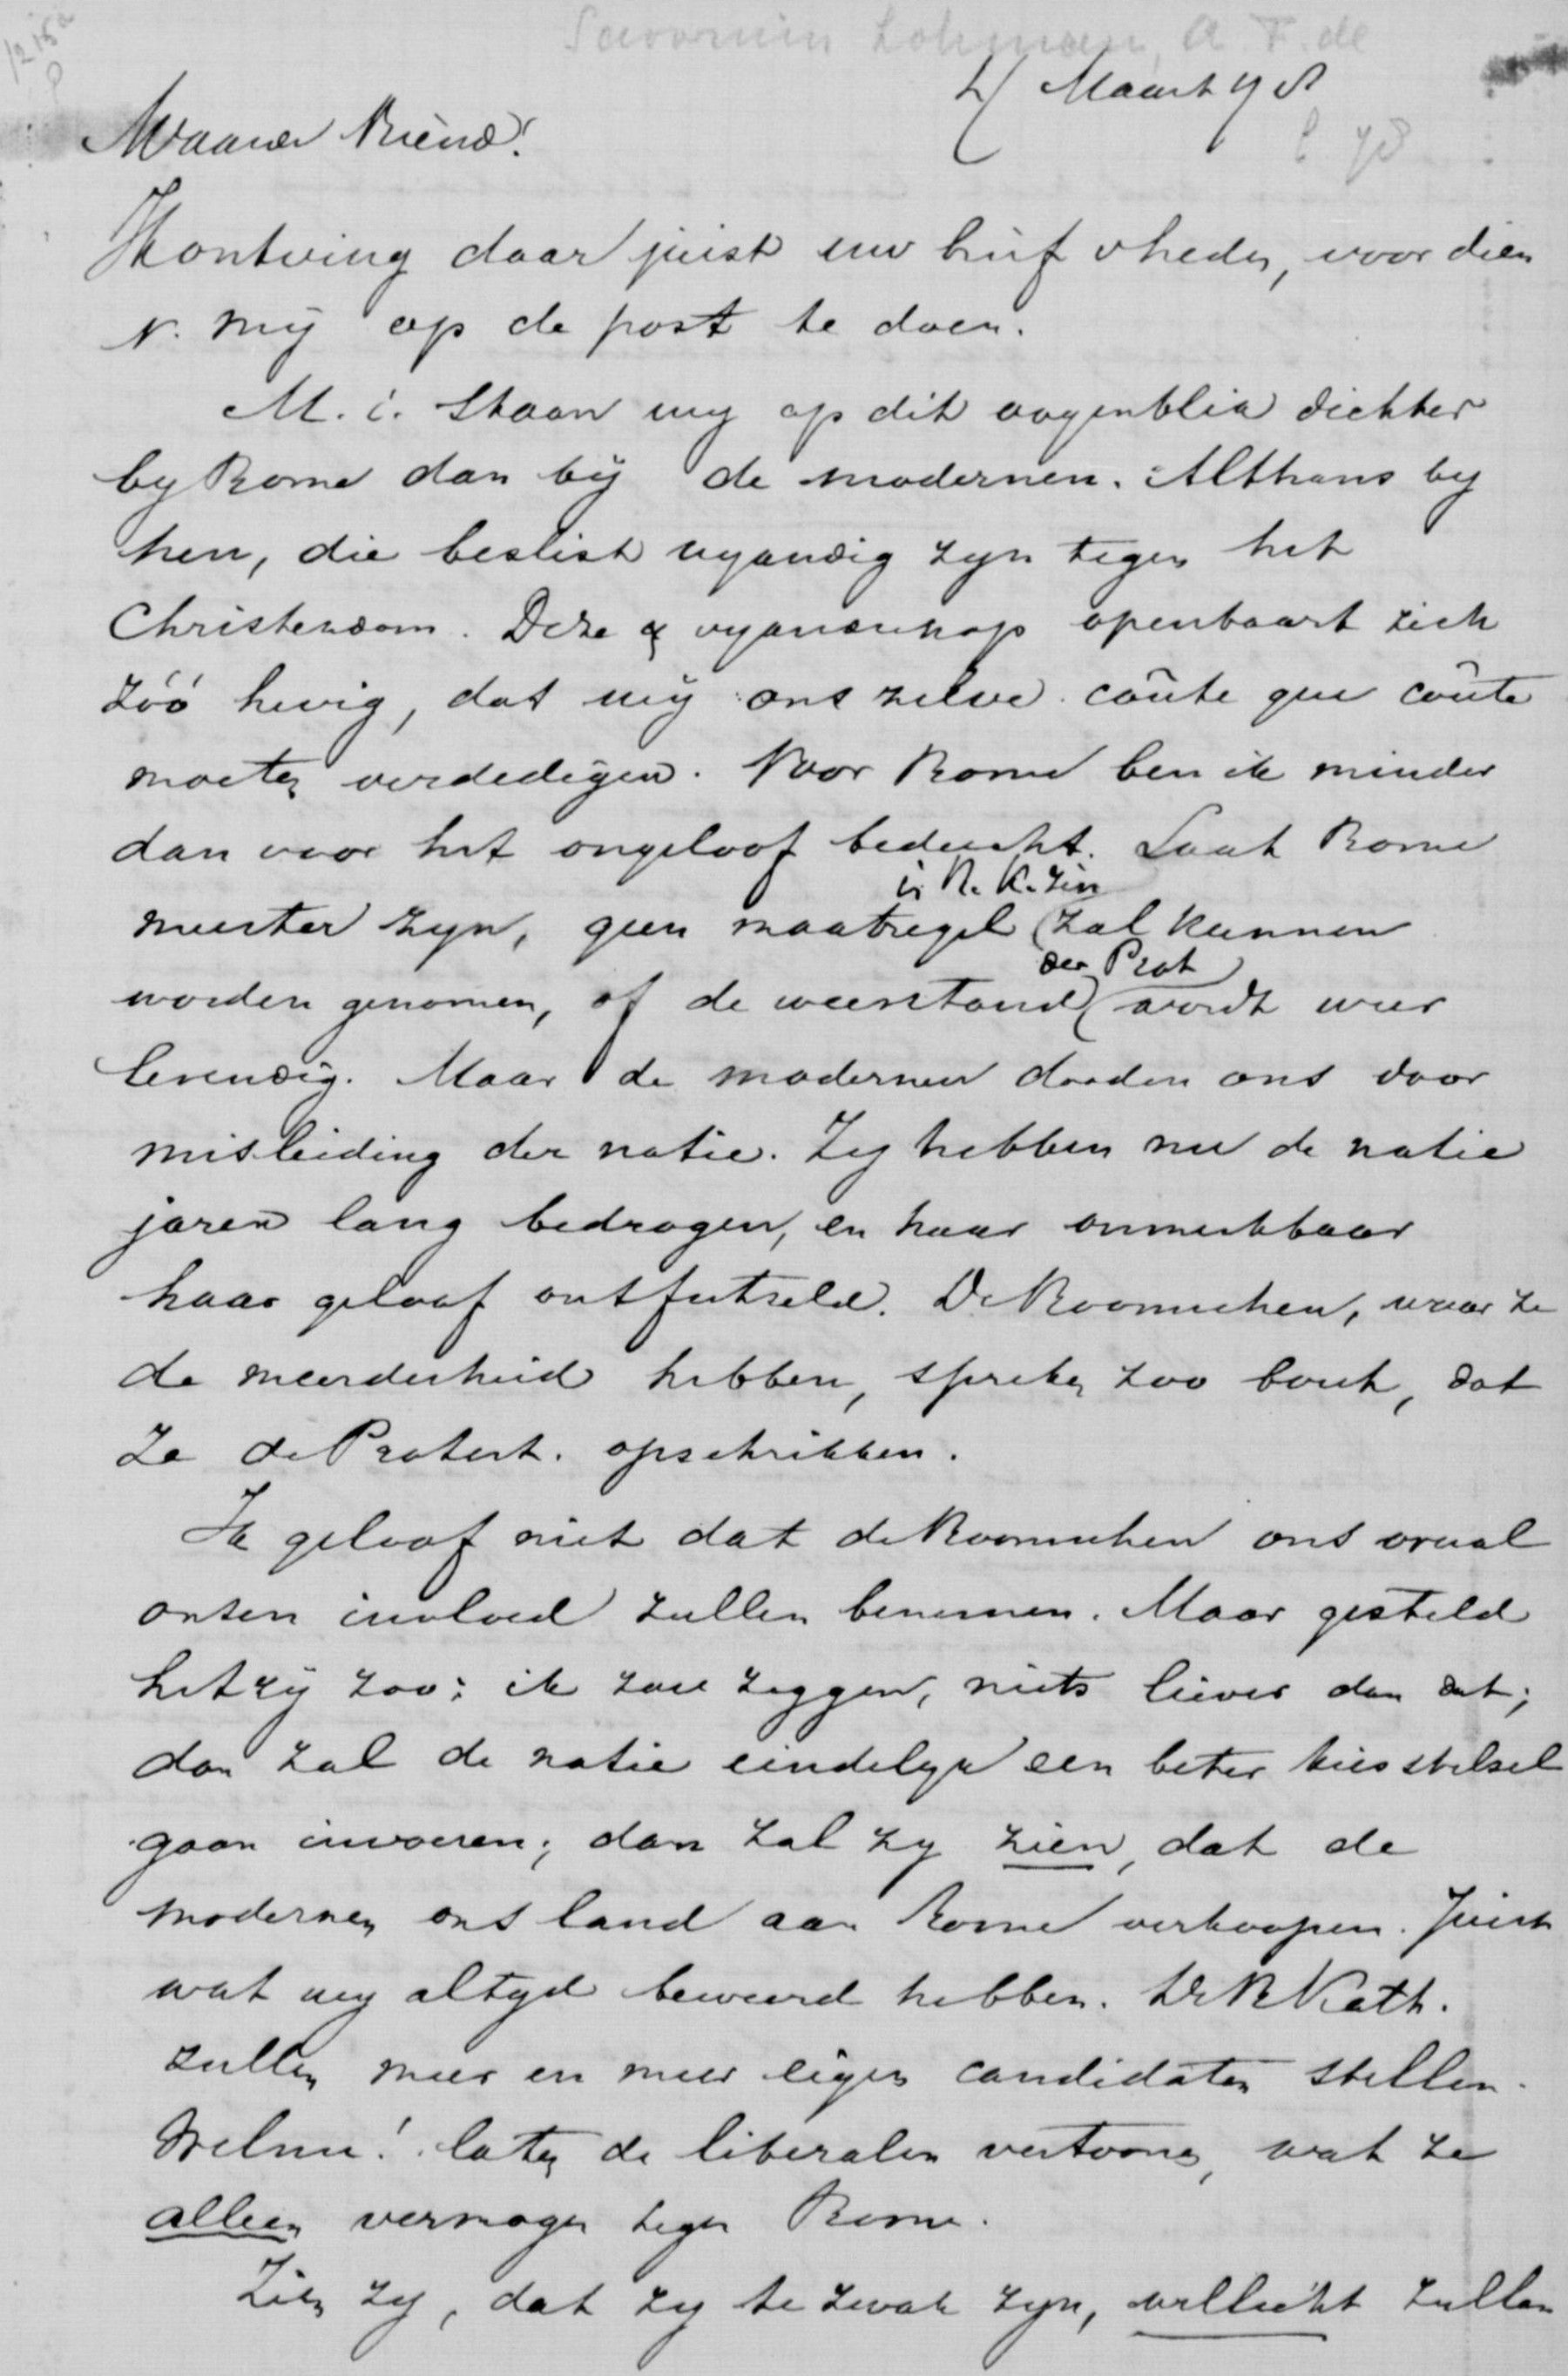 Savornin Lohman, A. F. de
4 Maart 78
78
Waarde Vriend!
Ik ontving daar juist uw brief v heden, voor dien
v. mij op de post te doen.
M. i. staan wy op dit oogenblik dichter
by Rome dan bij de modernen. Althans by
hen, die beslist vyandig zyn tegen het
Christendom. Deze vyandschap openbaart zich
zóó hevig, dat wij ons zelve coûte que coûte
moeten verdedigen. Voor Rome ben ik minder
dan voor het ongeloof beducht. Laat Rome
meester zyn, geen maatregel in R. K. zin zal kunnen
worden genomen, of de weerstand der Prot wordt weer
levendig. Maar de modernen dooden ons door
misleiding der natie. Zy hebben nu de natie
jaren lang bedrogen, en haar onmerkbaar
haar geloof ontfutseld. De Roomschen, waar ze
de meerderheid hebben, spreken zoo bout, dat
ze de Protest. opschrikken.
Ik geloof niet dat de Roomschen ons overal
onzen invloed zullen benemen. Maar gesteld
het zij zoo; ik zou zeggen, niets liever dan dat;
dan zal de natie eindelyk een beter kiesstelsel
gaan invoeren; dan zal zy zien, dat de
modernen ons land aan Rome verkoopen. Juist
wat wy altyd beweerd hebben. De R Kath.
zullen meer en meer eigen candidaten stellen.
Welnu! laten de liberalen vertoonen, wat ze
alleen vermogen tegen Rome.
Zien zy, dat zy te zwak zyn, wellicht zullen